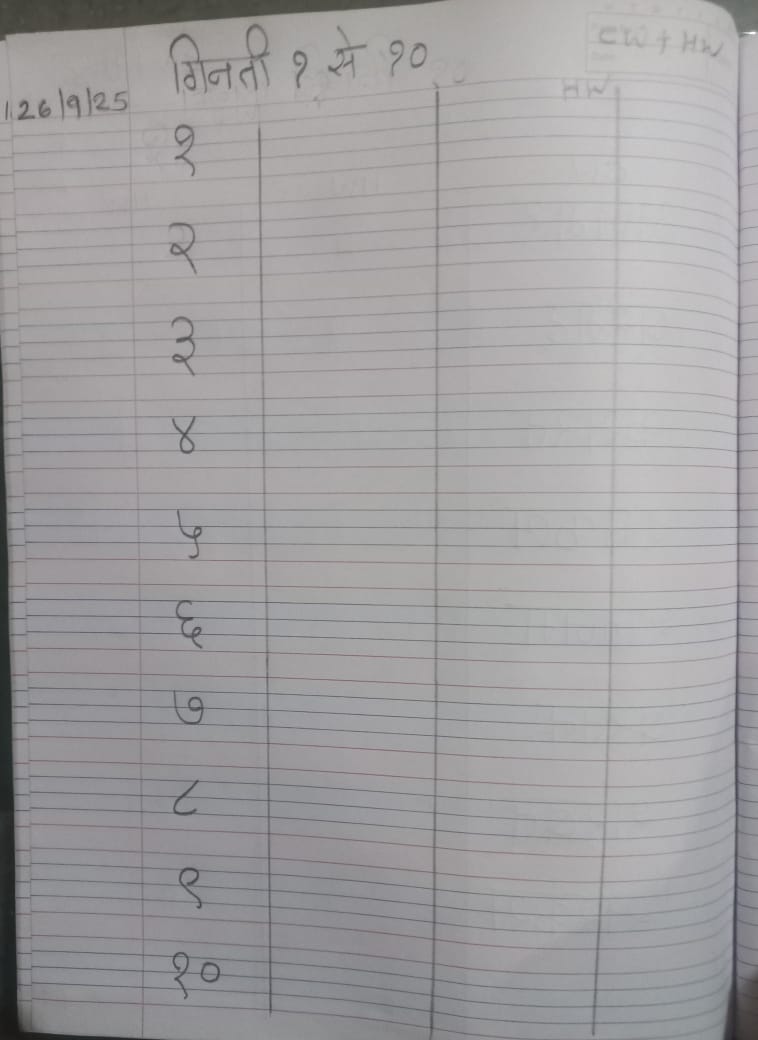 CW + HW
गिनती १ से १०
26/9/25
HW
१
२
३
४
५
६
७
८
९
१०